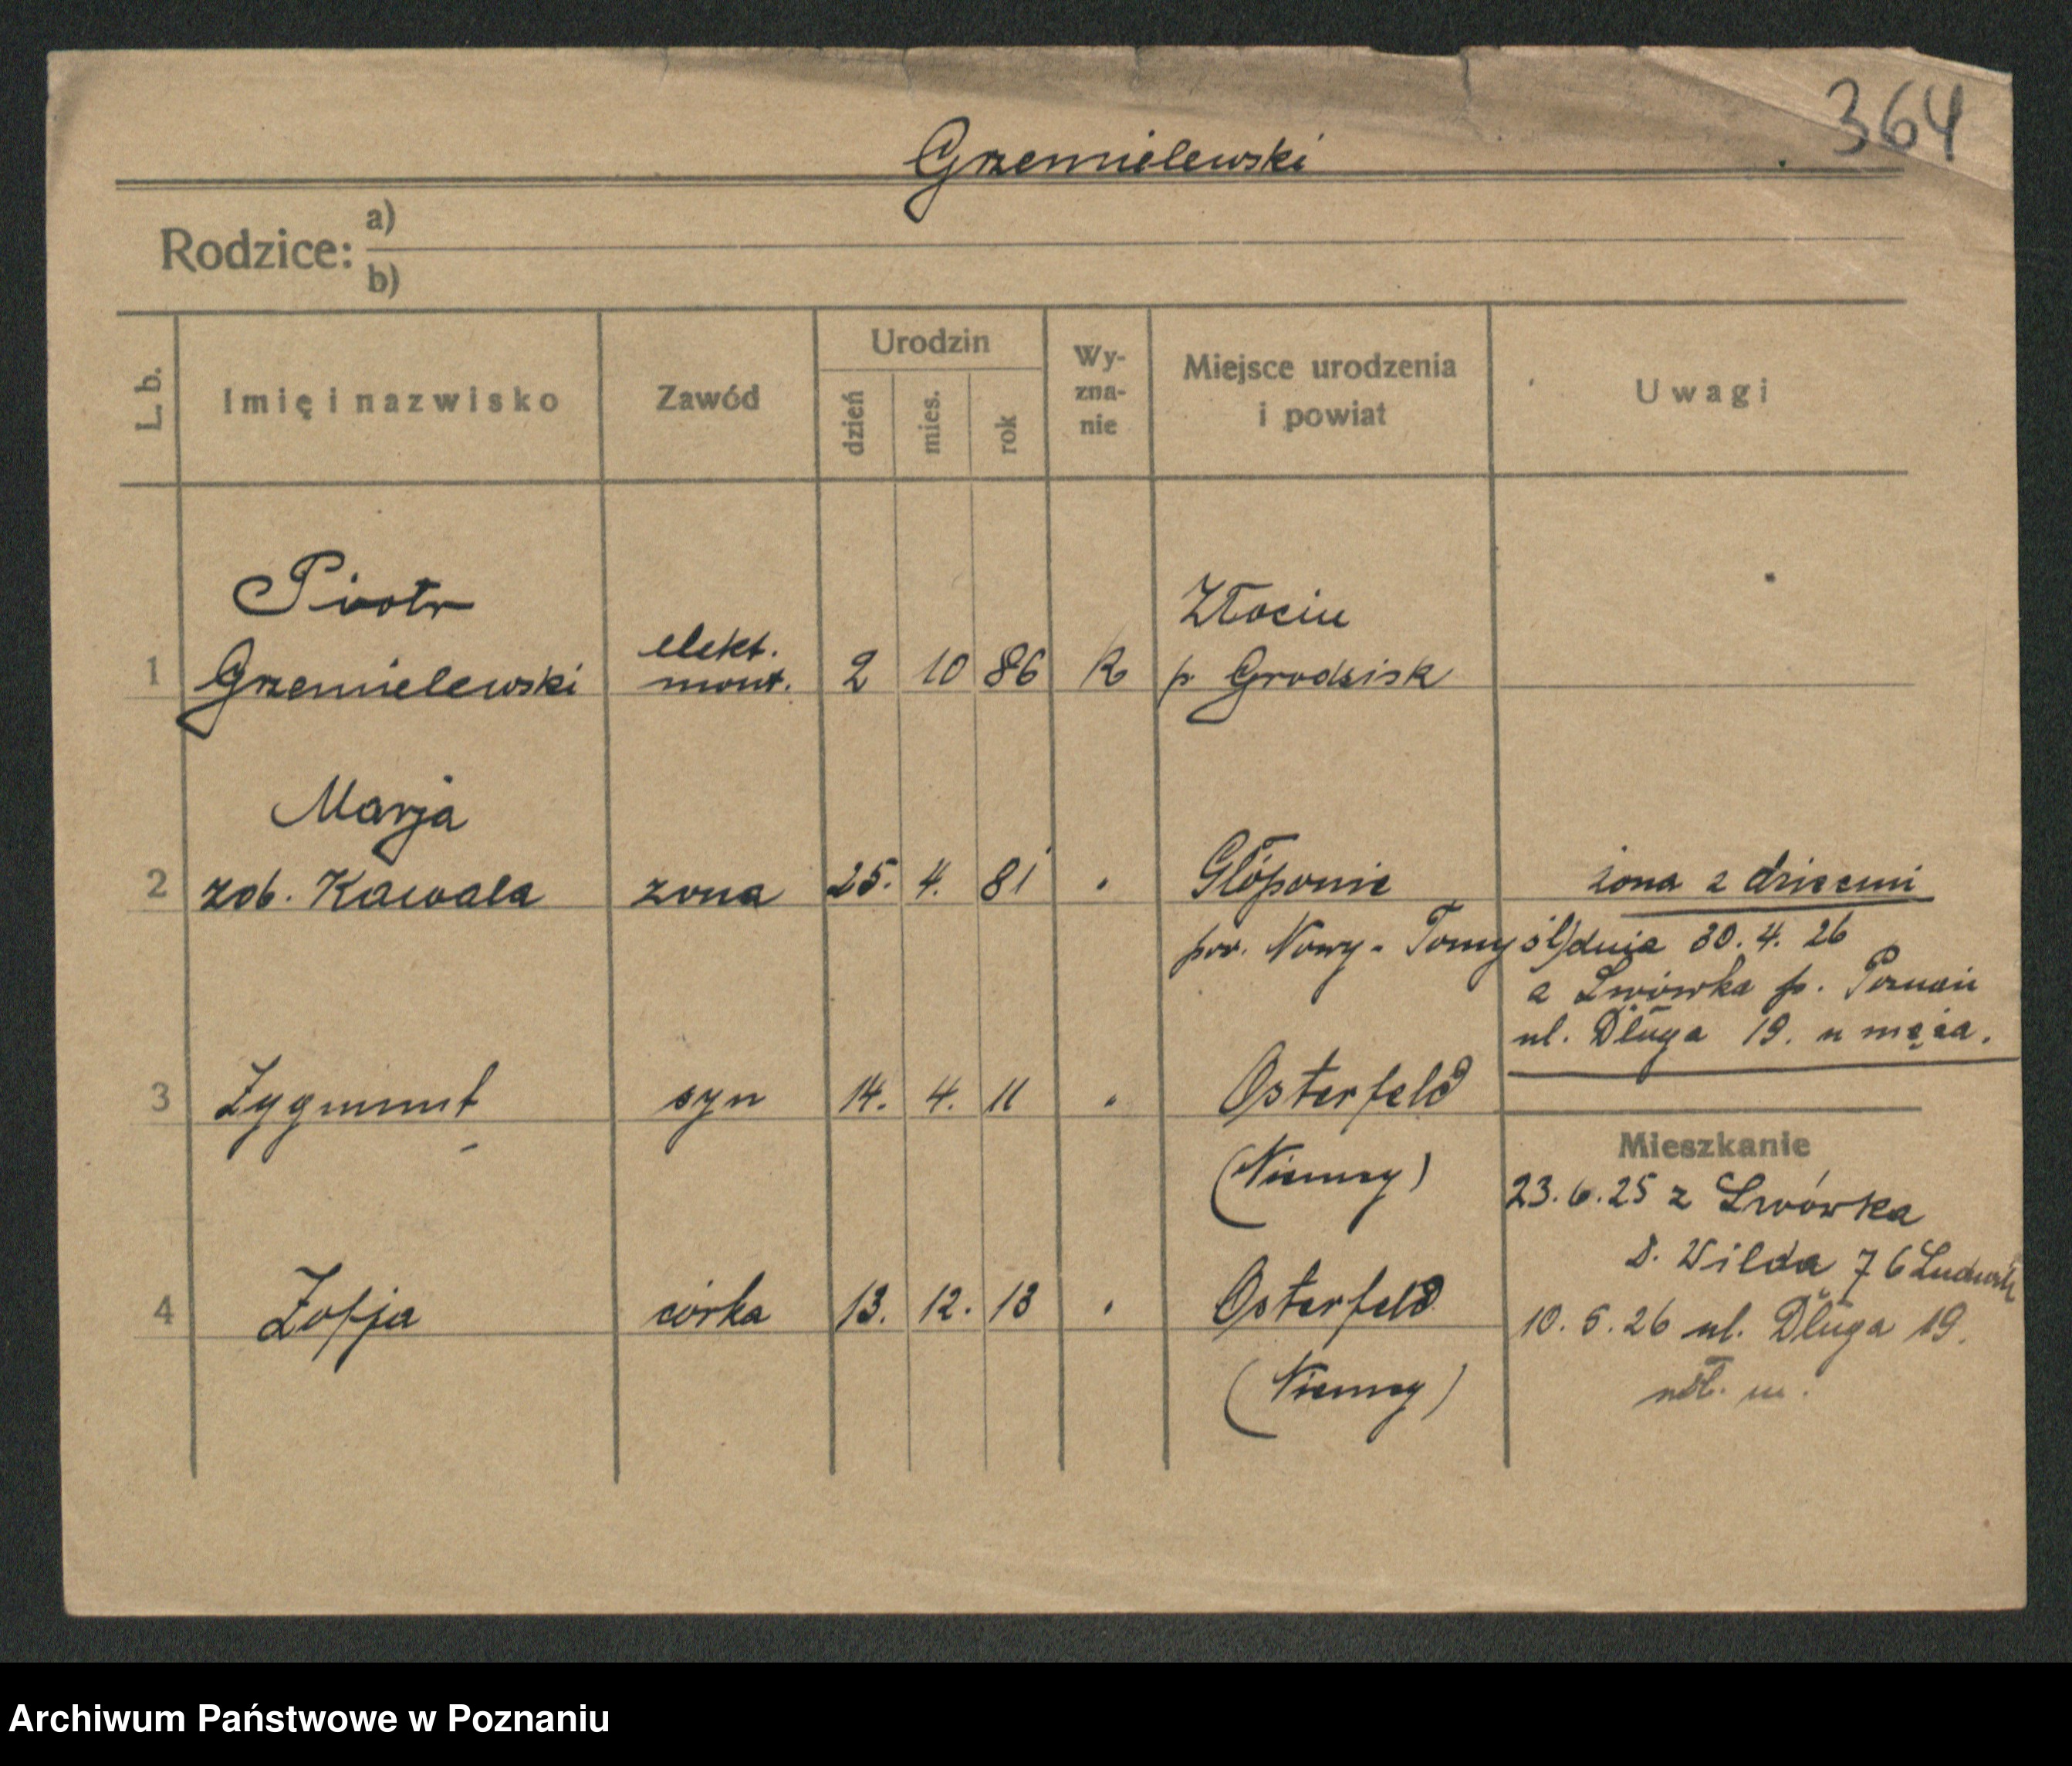 364
Grzemielewski
Rodzice: a)
b)
L. b.
Imię i nazwisko
Zawód
Urodzin
dzień
mies.
rok
Wy-
zna-
nie
Miejsce urodzenia
i powiat
Uwagi
Piotr
Złociu
elekt.
1 Grzemielewski mont. 2 10 86 K p Grodzisk
Marja
2 zob. Kawala żona 25. 4. 81 " Głóponie żona z dziećmi
pow. Nowy-Tomyśl dnia 30. 4. 26
z Lwówka p. Poznań
ul. Długa 19. u męża.
3 Zygmunt syn 14. 4. 11 " Osterfeld
(Niemcy)
Mieszkanie
23. 6. 25 z Lwówka
D. Wilda 76 Ludwik
4 Zofja córka 13. 12. 13 " Osterfeld
(Niemcy)
10. 5. 26 ul. Długa 19.
wł. m.
Archiwum Państwowe w Poznaniu